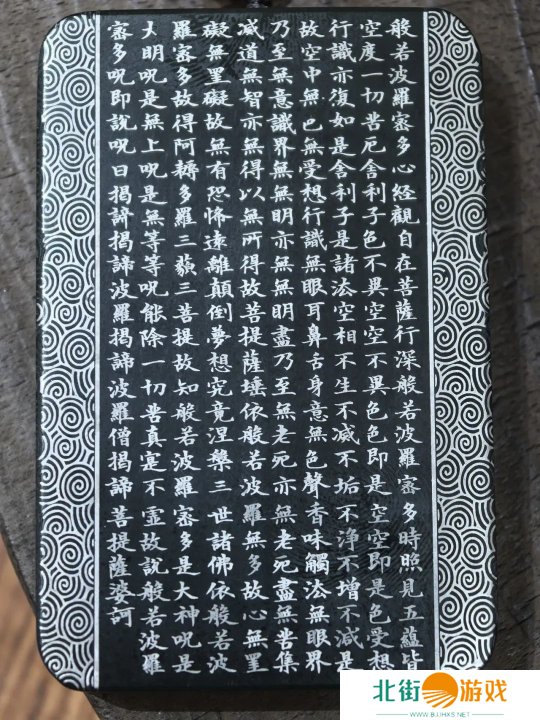 般若波羅蜜多心経觀自在菩薩行深般若波羅蜜多時照見五蘊皆
空度一切苦厄舍利子色不異空空不異色色即是空空即是色受想
行識亦復如是舍利子是諸法空相不生不滅不垢不淨不增不減是
故空中無色無受想行識無眼耳鼻舌身意無色聲香味觸法無眼界
乃至無意識界無無明亦無無明盡乃至無老死亦無老死盡無苦集
滅道無智亦無得以無所得故菩提薩埵依般若波羅無多故心無罣
礙無罣礙故無有恐怖遠離顛倒夢想究竟涅槃三世諸佛依般若波
羅蜜多故得阿耨多羅三藐三菩提故知般若波羅蜜多是大神呪是
大明呪是無上呪是無等等呪能除一切苦真寔不虛故說般若波羅
蜜多呪即說呪曰揭諦揭諦波羅揭諦波羅僧揭諦菩提薩婆訶
北街游戏
WWW.BJJHXS.NET